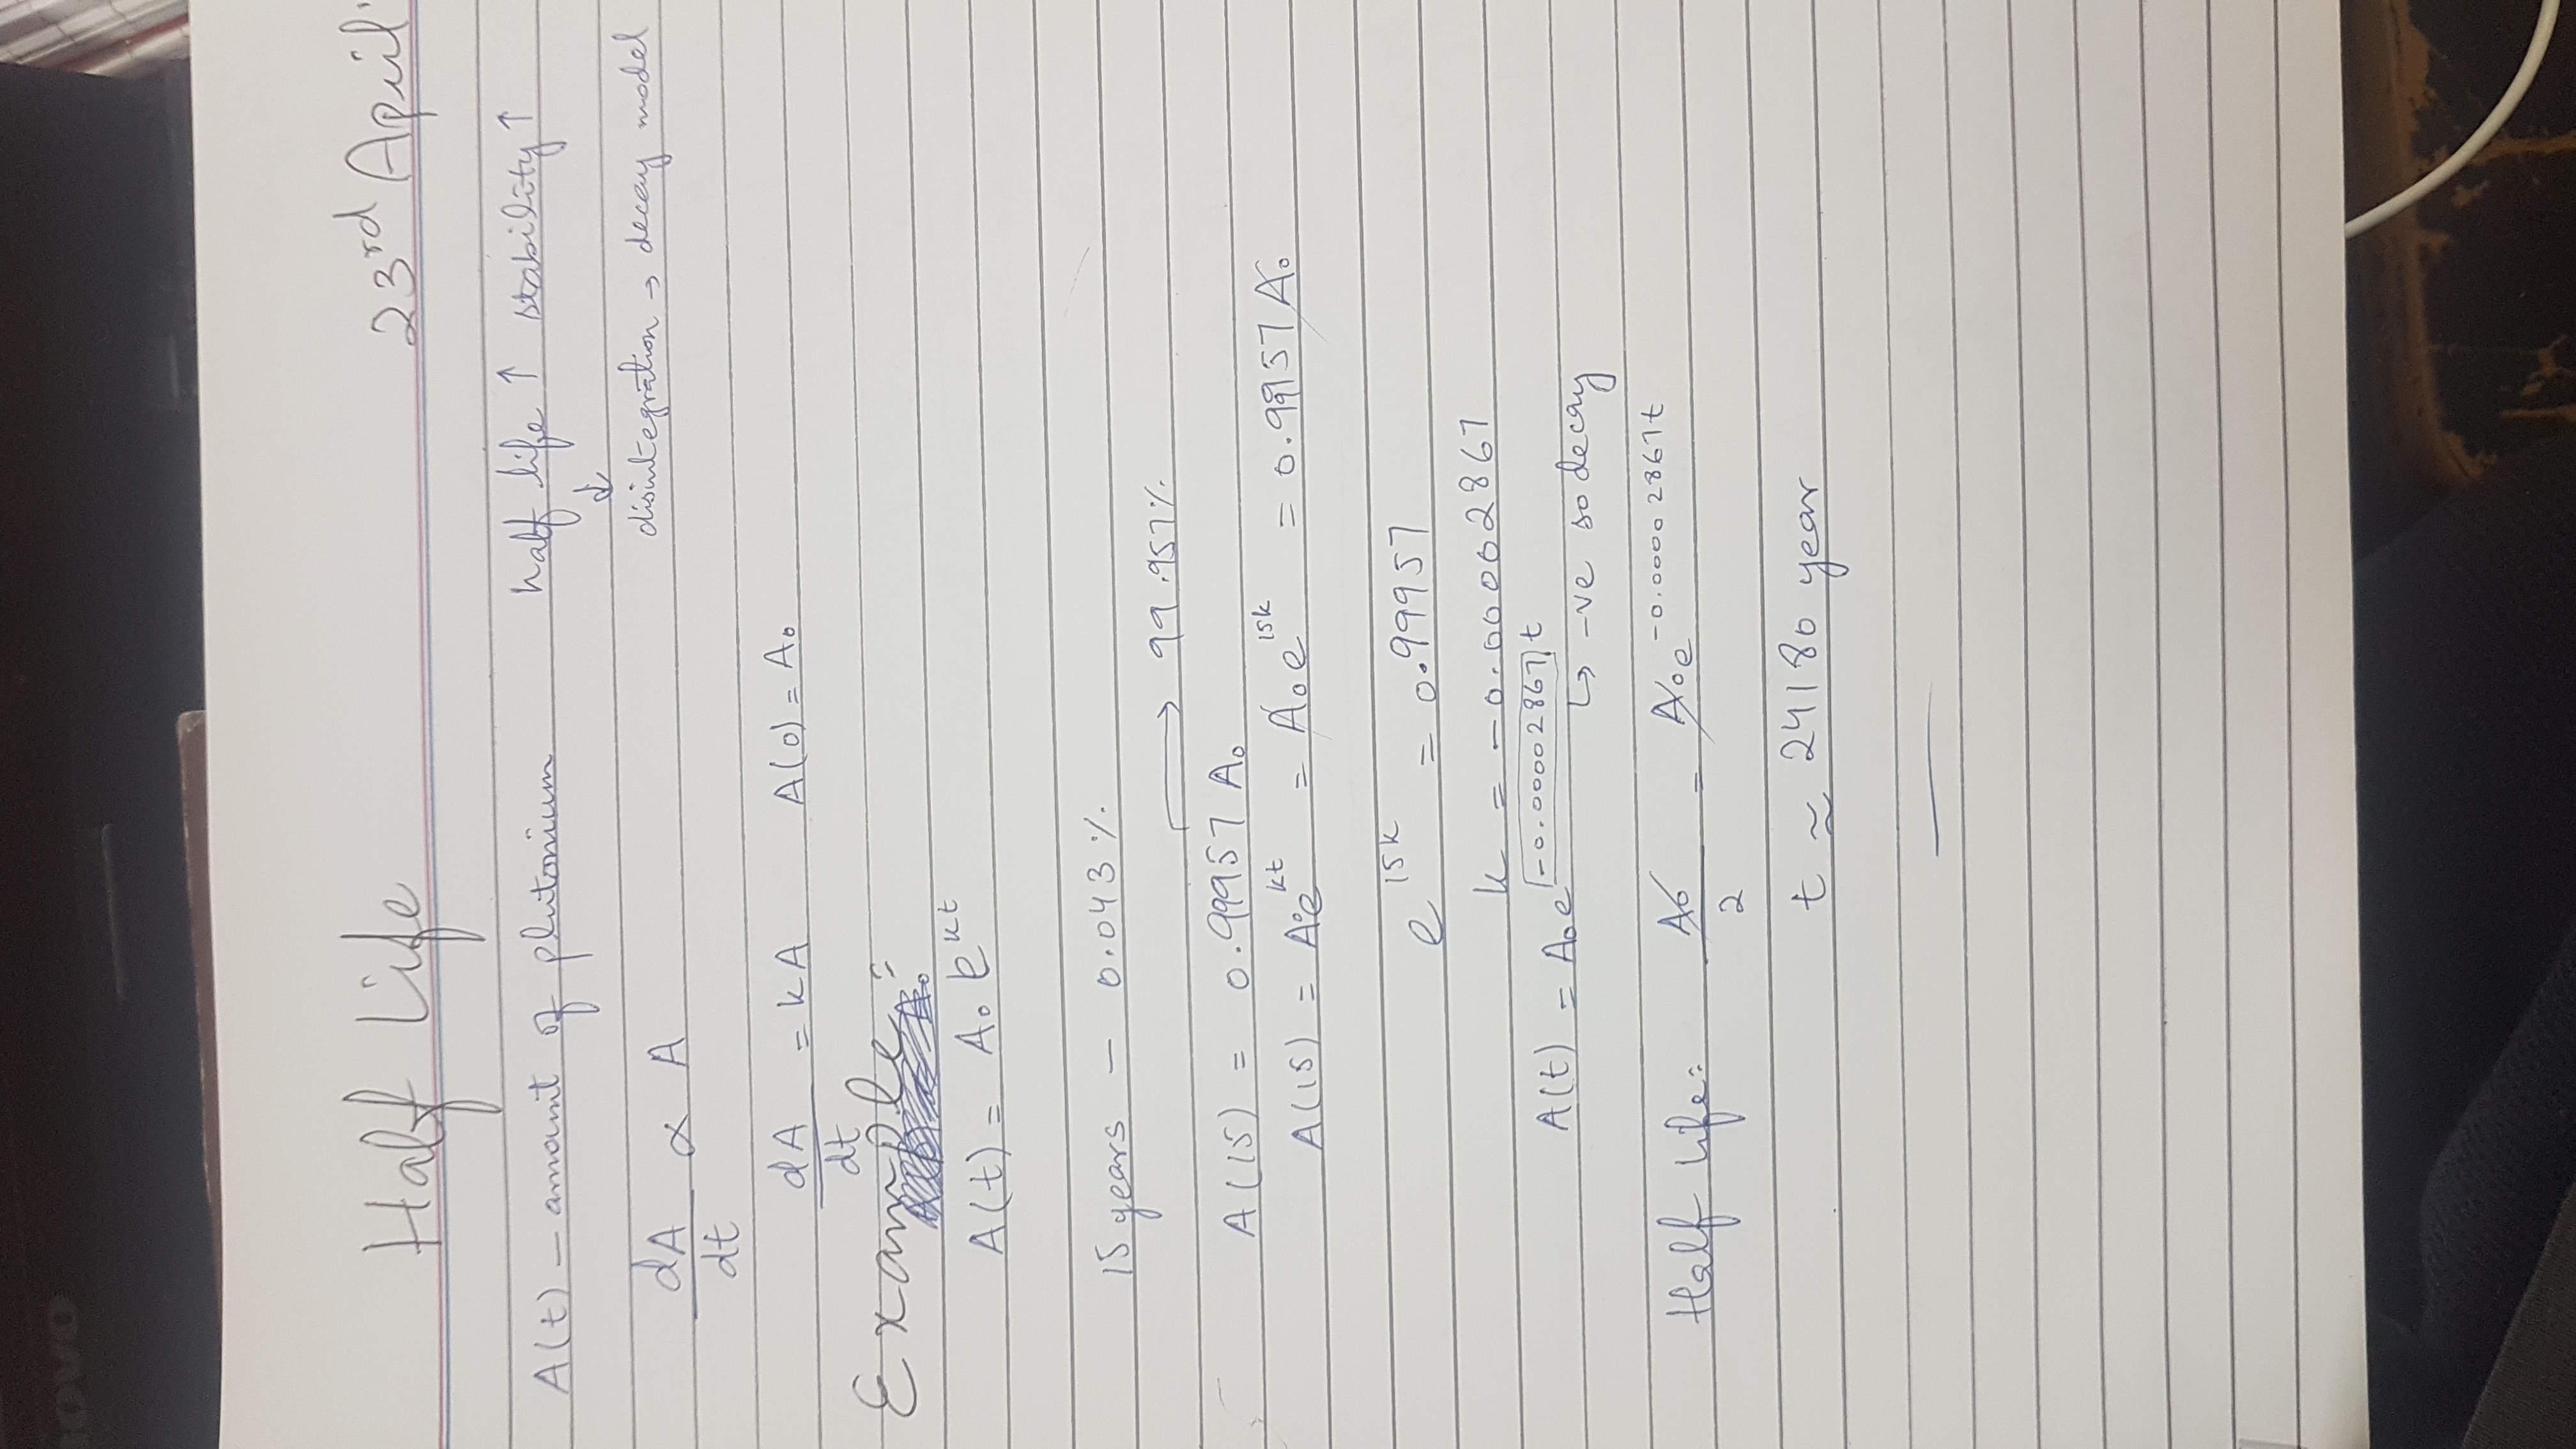 ovo
Half Life 23rd April
A(t) – amount of plutonium half life ↑ stability ↑
↓
disintegration → decay model
dA/dt ∝ A
dA/dt = kA A(0) = A₀
Example:
A(t) = A₀ e^kt
15 years – 0.043 %
→ 99.957%
A(15) = 0.99957 A₀
A(15) = A₀e^kt = A₀e^15k = 0.99957 A₀
e^15k = 0.99957
k = -0.00002867
A(t) = A₀e^(-0.00002867)t
↳ -ve so decay
Half Life: A₀/2 = A₀e^-0.00002867t
t ≈ 24180 year